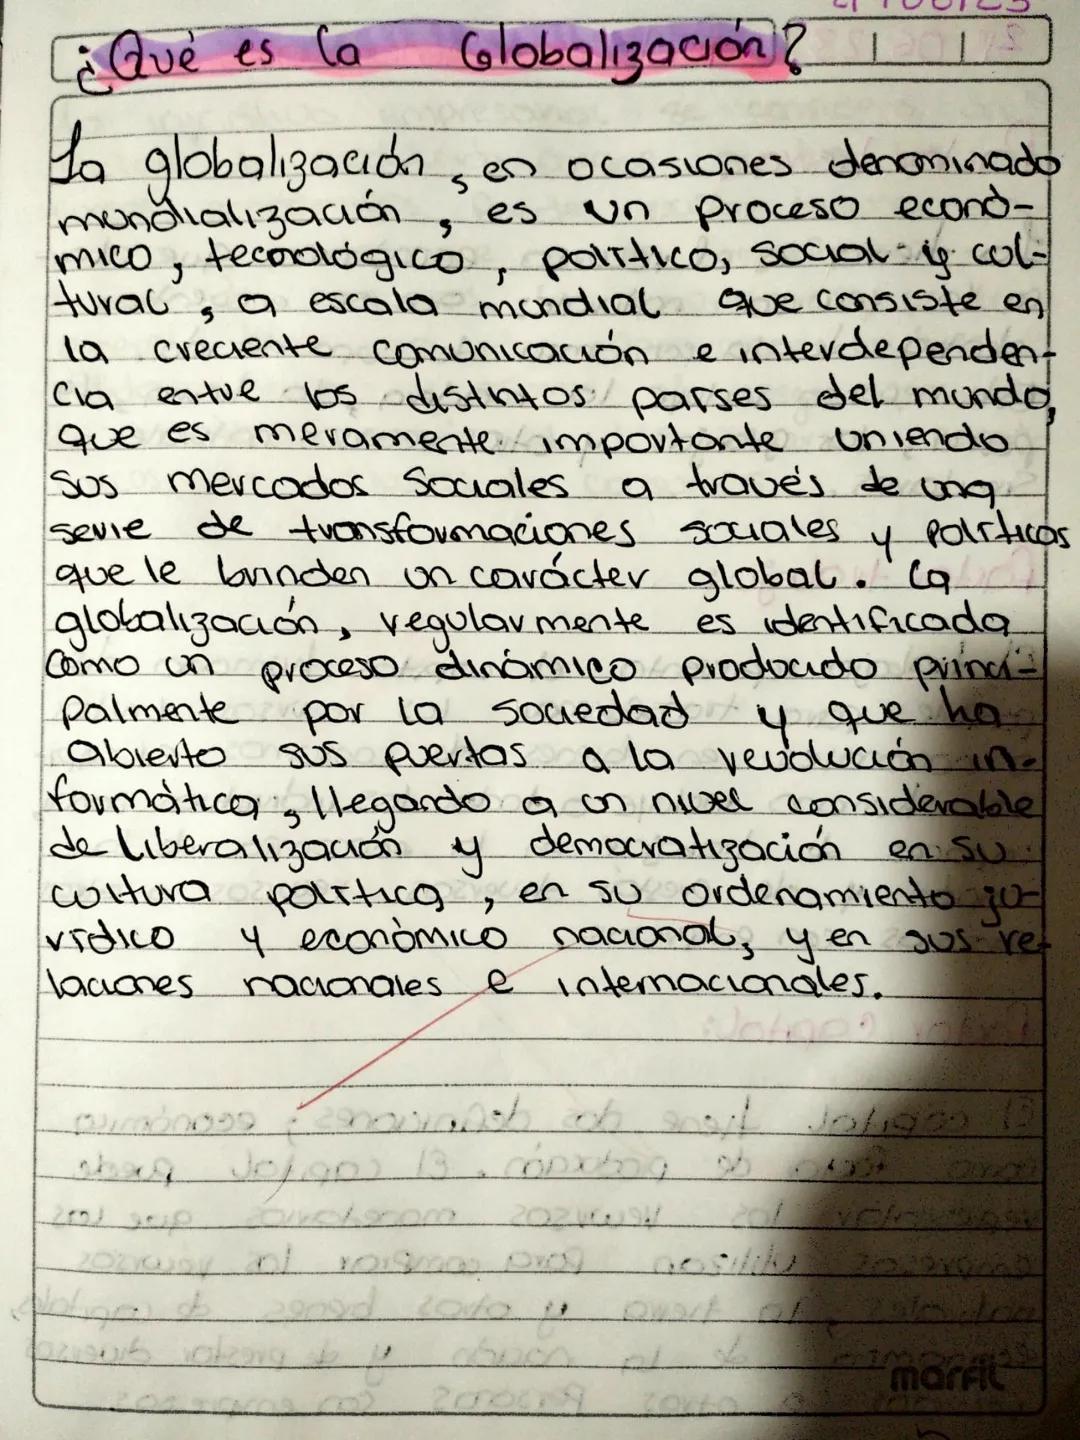 ¿Qué es la Globalización?
La globalización, en ocasiones denominado
mundialización, es un proceso econó-
mico, tecnológico, político, social y cul-
tural, a escala mundial que consiste en
la creciente comunicación e interdependen-
cia entre los distintos países del mundo,
que es meramente importante uniendo
sus mercados sociales a través de una
serie de transformaciones sociales y políticas
que le brinden un carácter global. La
globalización, regularmente es identificada
como un proceso dinámico producido princi-
palmente por la sociedad y que ha
abierto sus puertas a la revolución in-
formática, llegando a un nivel considerable
de liberalización y democratización en su
cultura política, en su ordenamiento ju-
rídico y económico nacional, y en sus re-
laciones nacionales e internacionales.
marfil